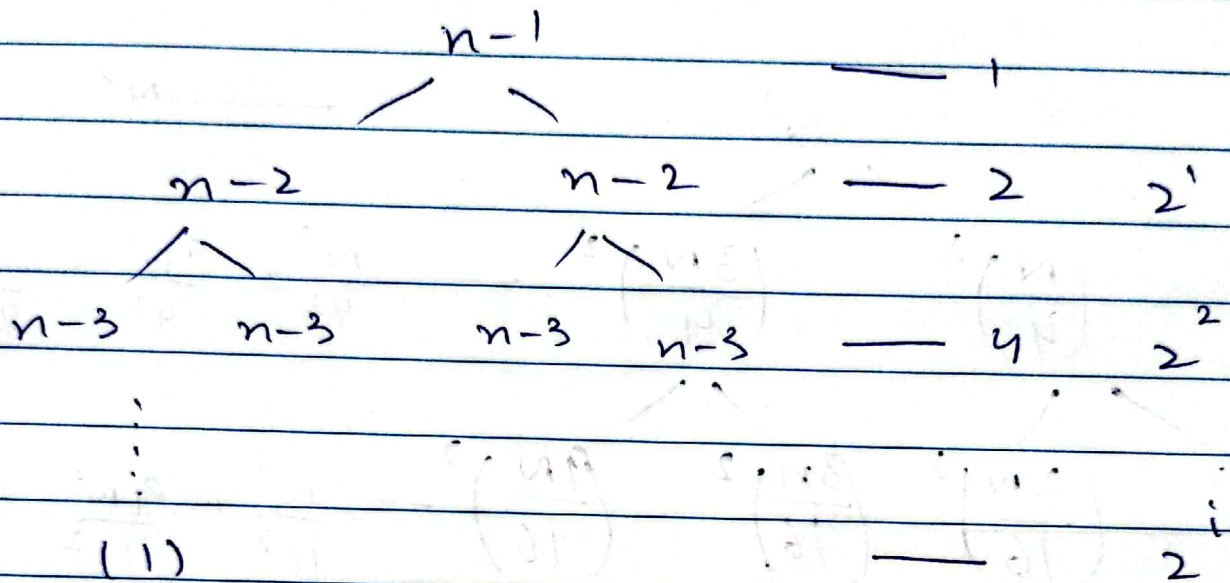 n-1 — 1
n-2 n-2 — 2 2¹
n-3 n-3 n-3 n-3 — 4 2²
(1) — 2ⁱ